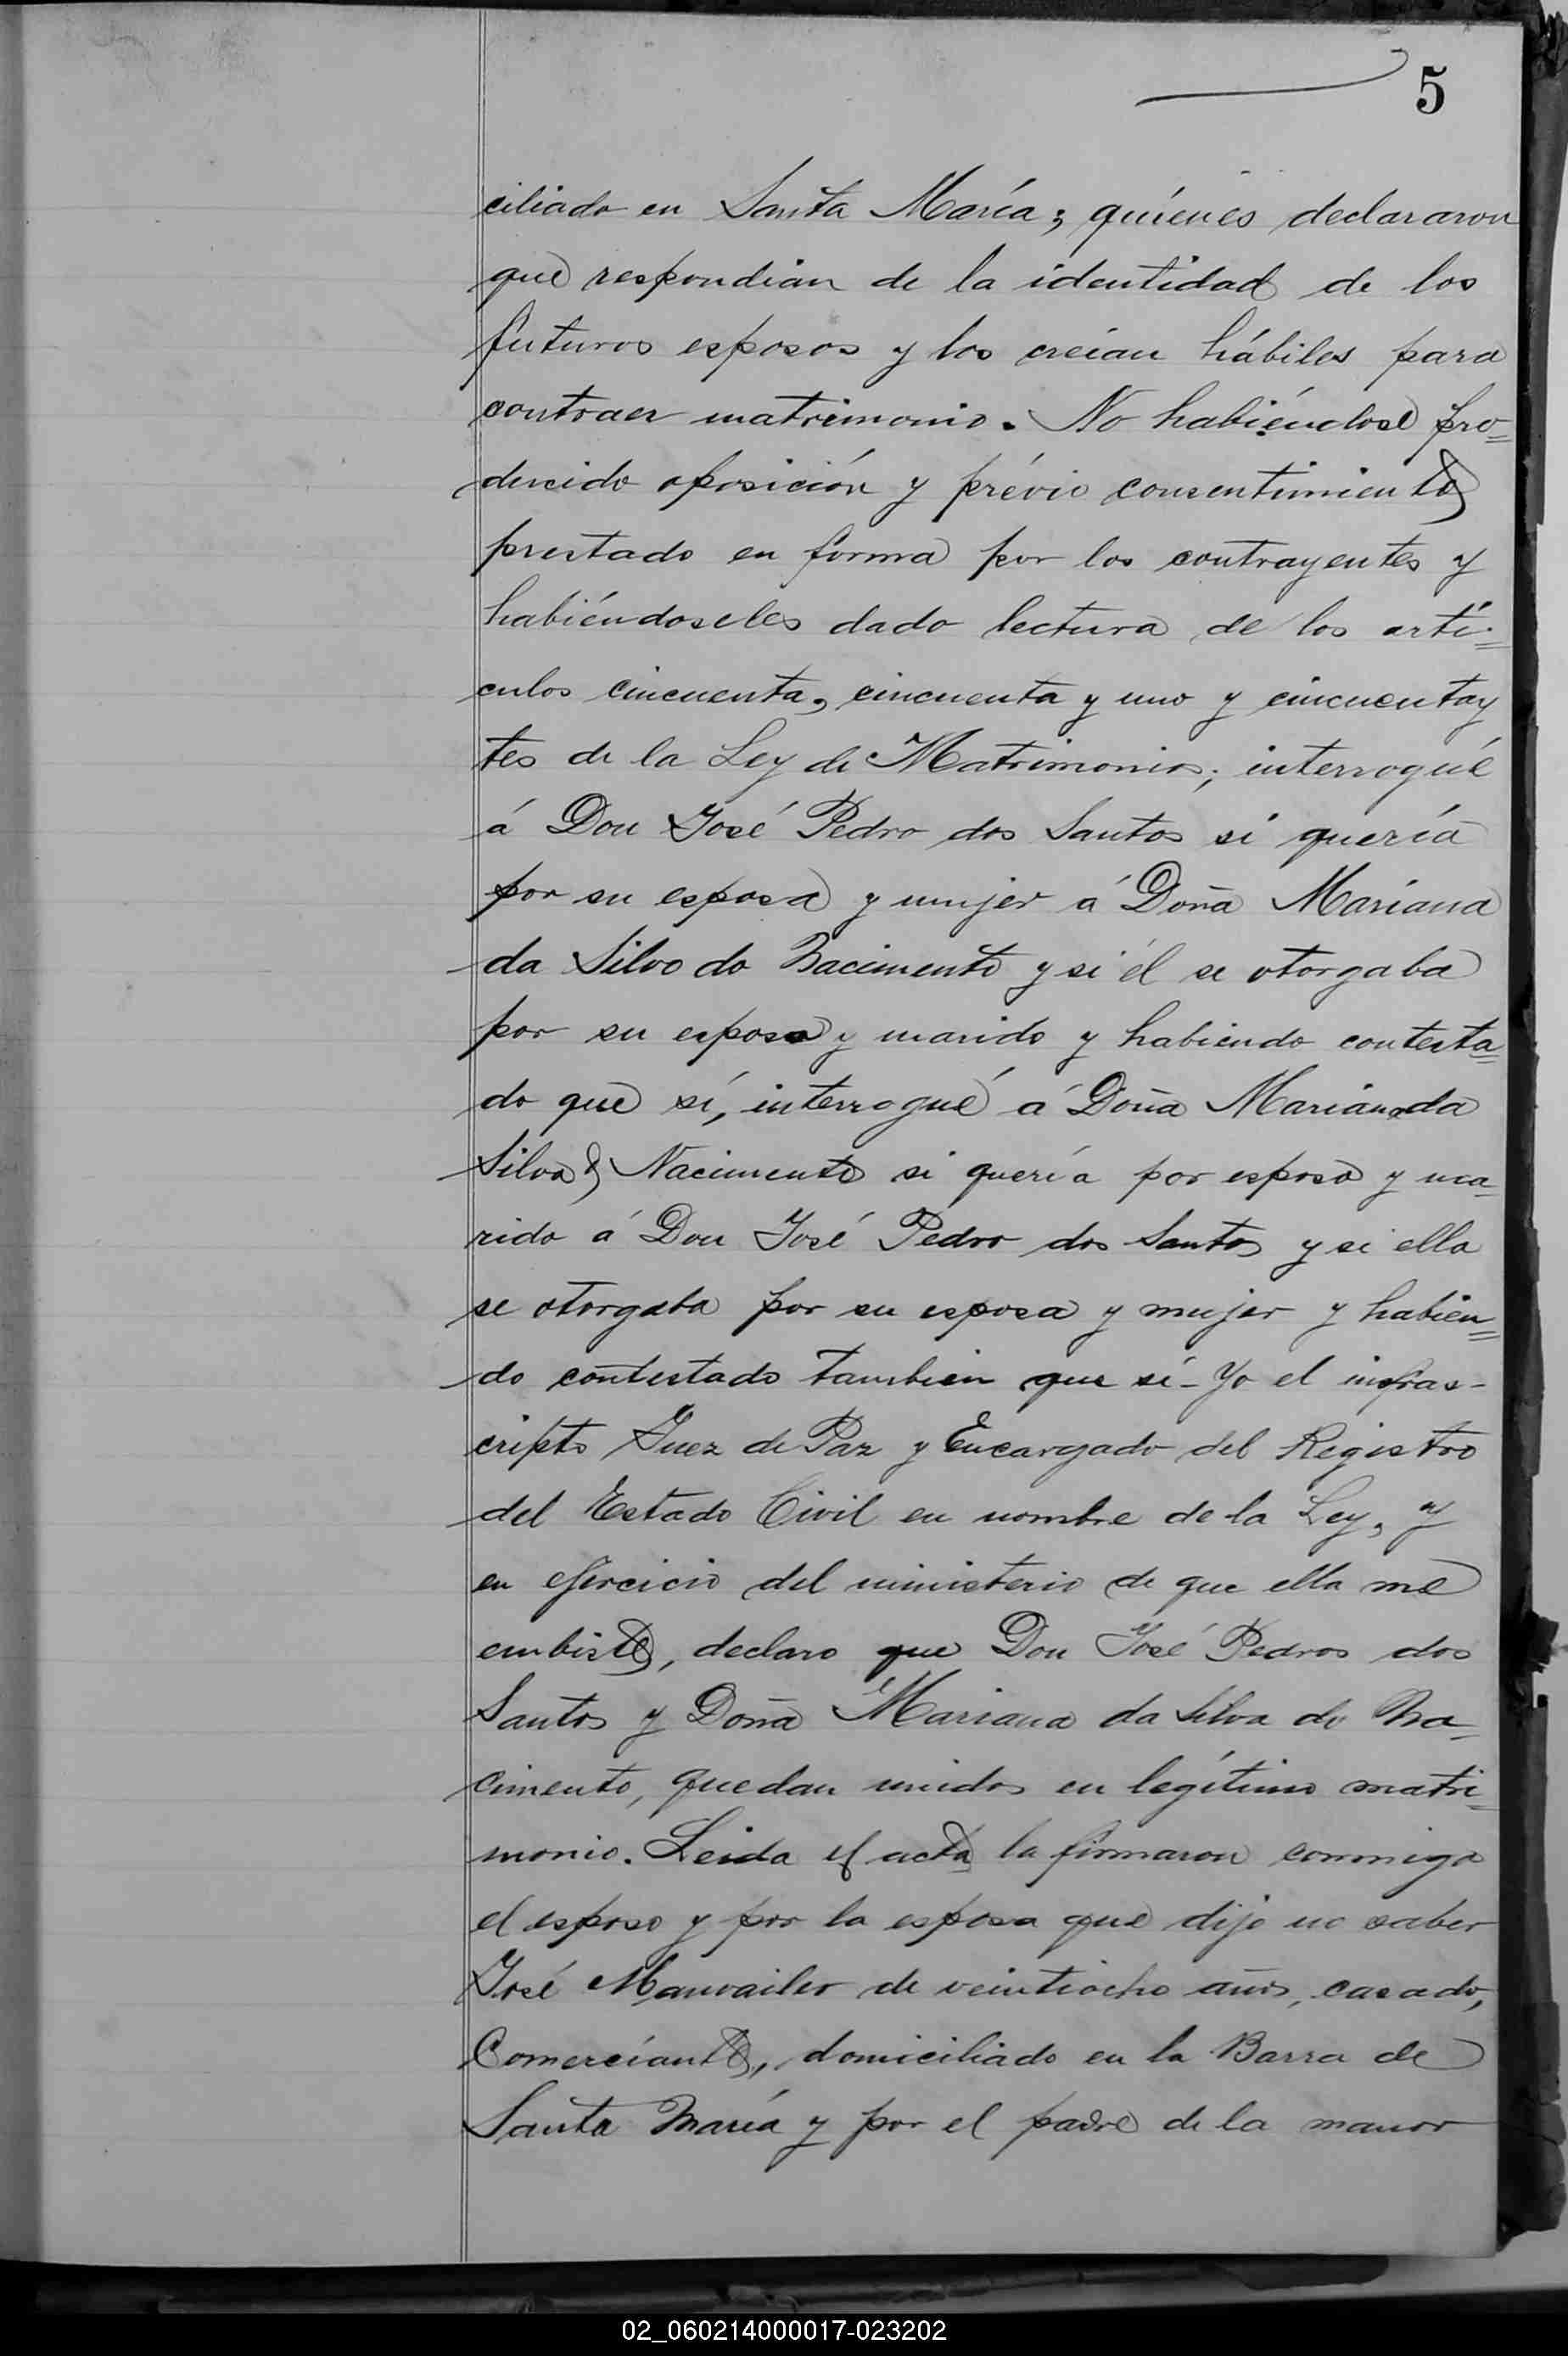 5
ciliado en Santa María; quienes declararon
que respondian de la identidad de los
futuros esposos y los creían hábiles para
contraer matrimonio. No habiéndose pro=
ducido oposición y prévio consentimiento
prestado en forma por los contrayentes y
habiéndoseles dado lectura de los artí=
culos cincuenta, cincuenta y uno y cincuenta y
tes de la Ley de Matrimonio; interrogué
á Don José Pedro dos Santos si quería
por su esposa y mujer á Doña Mariana
da Silva do Nacimento y si él se otorgaba
por su esposo y marido y habiendo contesta=
do que sí, interrogué á Doña Mariana da
Silva Nacimento si quería por esposo y ma=
rido á Don José Pedro dos Santos y si ella
se otorgaba por su esposa y mujer y habien=
do contestado tambien que sí - Yo el infras-
cripto Juez de Paz y Encargado del Registro
del Estado Civil en nombre de la Ley, y
en ejercicio del ministerio de que ella me
embiste, declaro que Don José Pedros dos
Santos y Doña Mariana da Silva do Na=
cimento, quedan unidos en legítimo matri=
monio. Leida el acta la firmaron conmigo
el esposo y por la esposa que dijo no saber
José Manvailer de veintiocho años, casado,
Comerciante, domiciliado en la Barra de
Santa María y por el padre de la manor
02_060214000017-023202